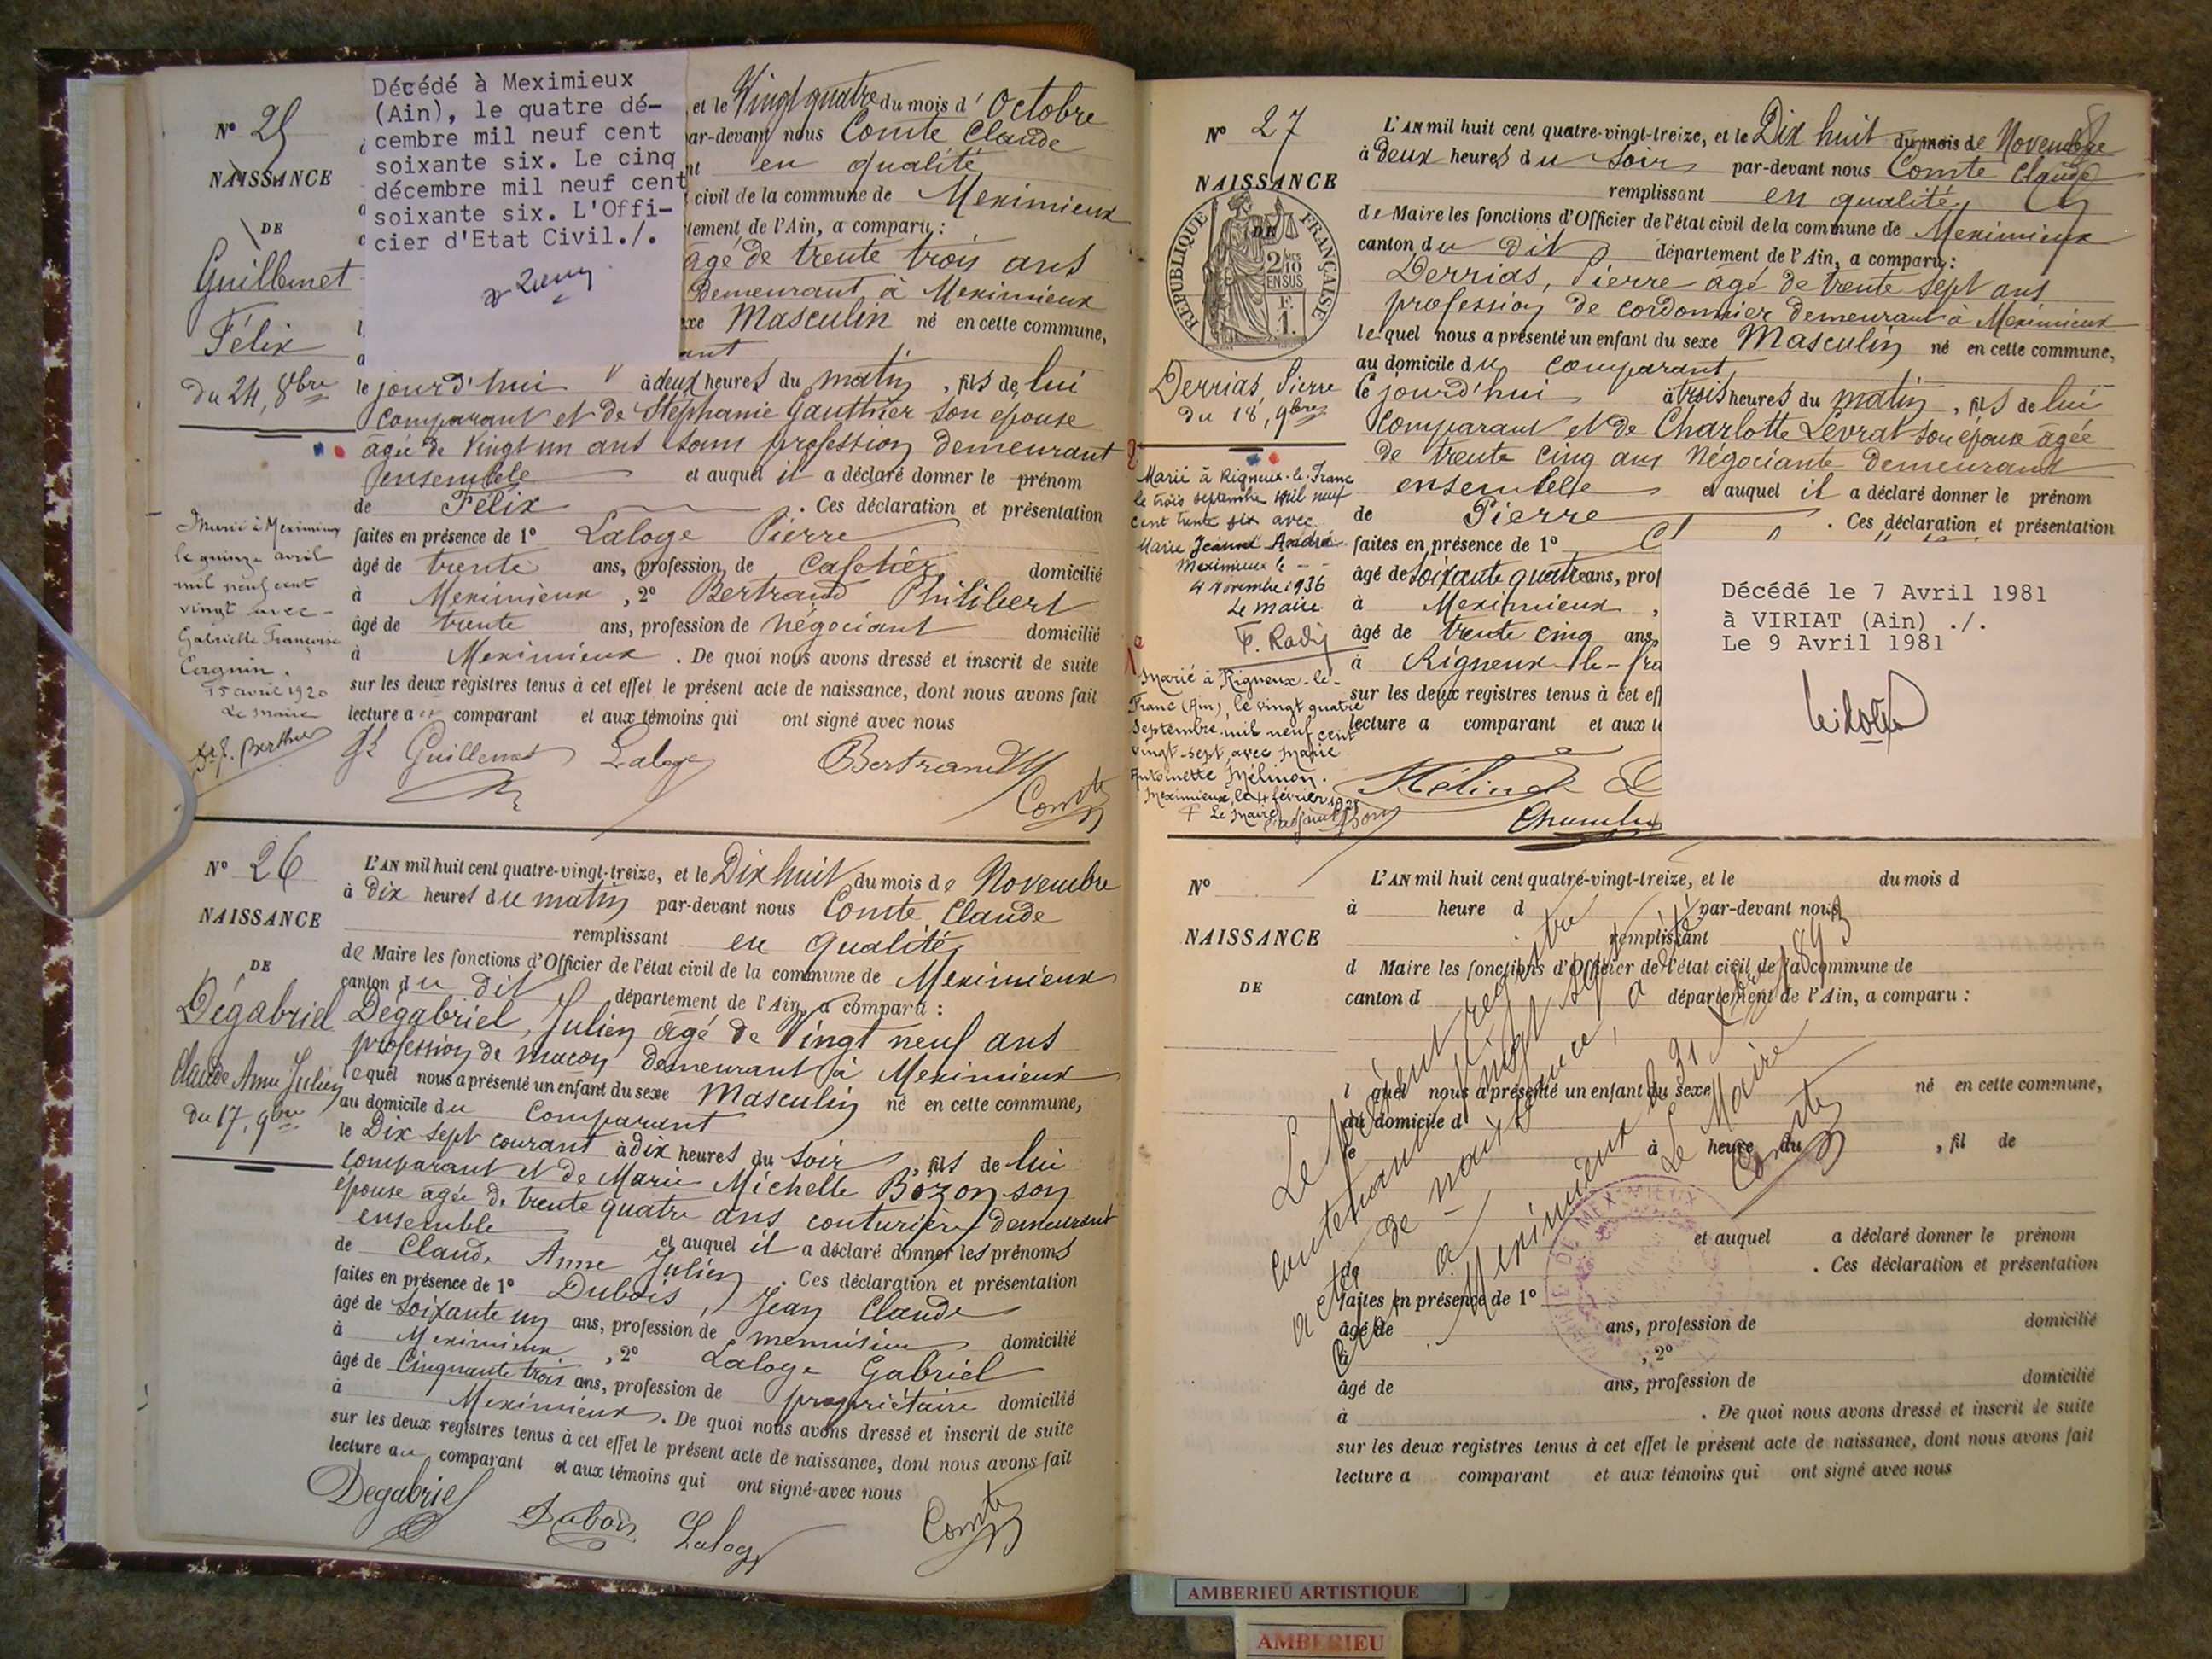 N° 25
NAISSANCE
DE
Guillemet
Félix
du 24, 8bre
Marié à Meximieux
le quinze avril
mil neuf cent
vingt avec
Gabrielle Françoise
15 avril 1920
Le Maire
Décédé à Meximieux
(Ain), le quatre dé-
cembre mil neuf cent
soixante six. Le cinq
décembre mil neuf cent
soixante six. L'Offi-
cier d'Etat Civil./.
et le Vingt quatre du mois d'Octobre
ar-devant nous Comte Claude
nt en qualité
civil de la commune de Meximieux
tement de l'Ain, a comparu :
âgé de trente trois ans
Demeurant à Meximieux
exe Masculin né en cette commune,
ant
le jourd'hui à deux heures du matin, fils de lui
comparant et de Stéphanie Gauthier son épouse
âgée de Vingt un ans sans profession demeurant
ensemble et auquel il a déclaré donner le prénom
de Félix . Ces déclaration et présentation
faites en présence de 1° Laloge Pierre
âgé de trente ans, profession de Cafetier domicilié
à Meximieux , 2° Bertrand Philibert
âgé de trente ans, profession de négociant domicilié
à Meximieux . De quoi nous avons dressé et inscrit de suite
sur les deux registres tenus à cet effet le présent acte de naissance, dont nous avons fait
lecture au comparant et aux témoins qui ont signé avec nous
Guillemet Laloge Bertrand
Comte
N° 26
NAISSANCE
DE
Dégabriel
Claude Anne Julien
du 17, 9bre
L'AN mil huit cent quatre-vingt-treize, et le Dix huit du mois de Novembre
à dix heures du matin par-devant nous Comte Claude
remplissant en qualité
de Maire les fonctions d'Officier de l'état civil de la commune de Meximieux
canton du dit département de l'Ain, a comparu :
Dégabriel, Julien âgé de Vingt neuf ans
profession de maçon demeurant à Meximieux
lequel nous a présenté un enfant du sexe Masculin né en cette commune,
au domicile du Comparant
le Dix sept courant à dix heures du soir, fils de lui
comparant et de Marie Michelle Bozon son
épouse âgée de trente quatre ans couturière demeurant
ensemble et auquel il a déclaré donner les prénoms
de Claude Anne Julien . Ces déclaration et présentation
faites en présence de 1° Dubois, Jean Claude
âgé de soixante un ans, profession de menuisier domicilié
à Meximieux , 2° Laloge Gabriel
âgé de Cinquante trois ans, profession de propriétaire domicilié
à Meximieux . De quoi nous avons dressé et inscrit de suite
sur les deux registres tenus à cet effet le présent acte de naissance, dont nous avons fait
lecture au comparant et aux témoins qui ont signé avec nous
Degabriel Dubois Laloge Comte
N° 27
NAISSANCE
DE
RÉPUBLIQUE FRANÇAISE
2/10 EN SUS
F. 1.
Derrias, Pierre
du 18, 9bre
2°
Marié à Rigneux-le-Franc
le trois septembre mil neuf
cent trente six avec
Marie Jeanne André
Meximieux le
4 Novembre 1936
Le maire
1°
Marié à Rigneux-le-
Franc (Ain), le vingt quatre
septembre mil neuf cent
vingt-sept, avec Marie
Antoinette Mélinon.
Meximieux, le 4 février 1928
Le Maire
L'AN mil huit cent quatre-vingt-treize, et le Dix huit du mois de Novembre
à deux heures du soir par-devant nous Comte Claude
remplissant en qualité
de Maire les fonctions d'Officier de l'état civil de la commune de Meximieux
canton du dit département de l'Ain, a comparu :
Derrias, Pierre âgé de trente sept ans
profession de cordonnier demeurant à Meximieux
lequel nous a présenté un enfant du sexe Masculin né en cette commune,
au domicile du comparant
le jourd'hui à trois heures du matin, fils de lui
comparant et de Charlotte Levrat son épouse âgée
de trente cinq ans Négociante demeurant
ensemble et auquel il a déclaré donner le prénom
de Pierre . Ces déclaration et présentation
faites en présence de 1°
âgé de soixante quatre ans, prof
à Meximieux ,
âgé de trente cinq ans,
à Rigneux-le-fra
sur les deux registres tenus à cet eff
lecture a comparant et aux té
Décédé le 7 Avril 1981
à VIRIAT (Ain) ./.
Le 9 Avril 1981
N°
NAISSANCE
DE
L'AN mil huit cent quatre-vingt-treize, et le du mois d
à heure d par-devant nous
remplissant
d Maire les fonctions d'Officier de l'état civil de la commune de
canton d département de l'Ain, a comparu :
l quel nous a présenté un enfant du sexe né en cette commune,
au domicile d
le à heure du , fil de
et auquel a déclaré donner le prénom
de . Ces déclaration et présentation
faites en présence de 1°
âgé de ans, profession de domicilié
à , 2°
âgé de ans, profession de domicilié
à . De quoi nous avons dressé et inscrit de suite
sur les deux registres tenus à cet effet le présent acte de naissance, dont nous avons fait
lecture a comparant et aux témoins qui ont signé avec nous
Le présent registre
contenant vingt sept
actes de naissance, a été
clos
à Meximieux le 31 Xbre 1893
Le Maire
Comte
MAIRIE DE MEXIMIEUX
AMBERIEU ARTISTIQUE
AMBERIEU